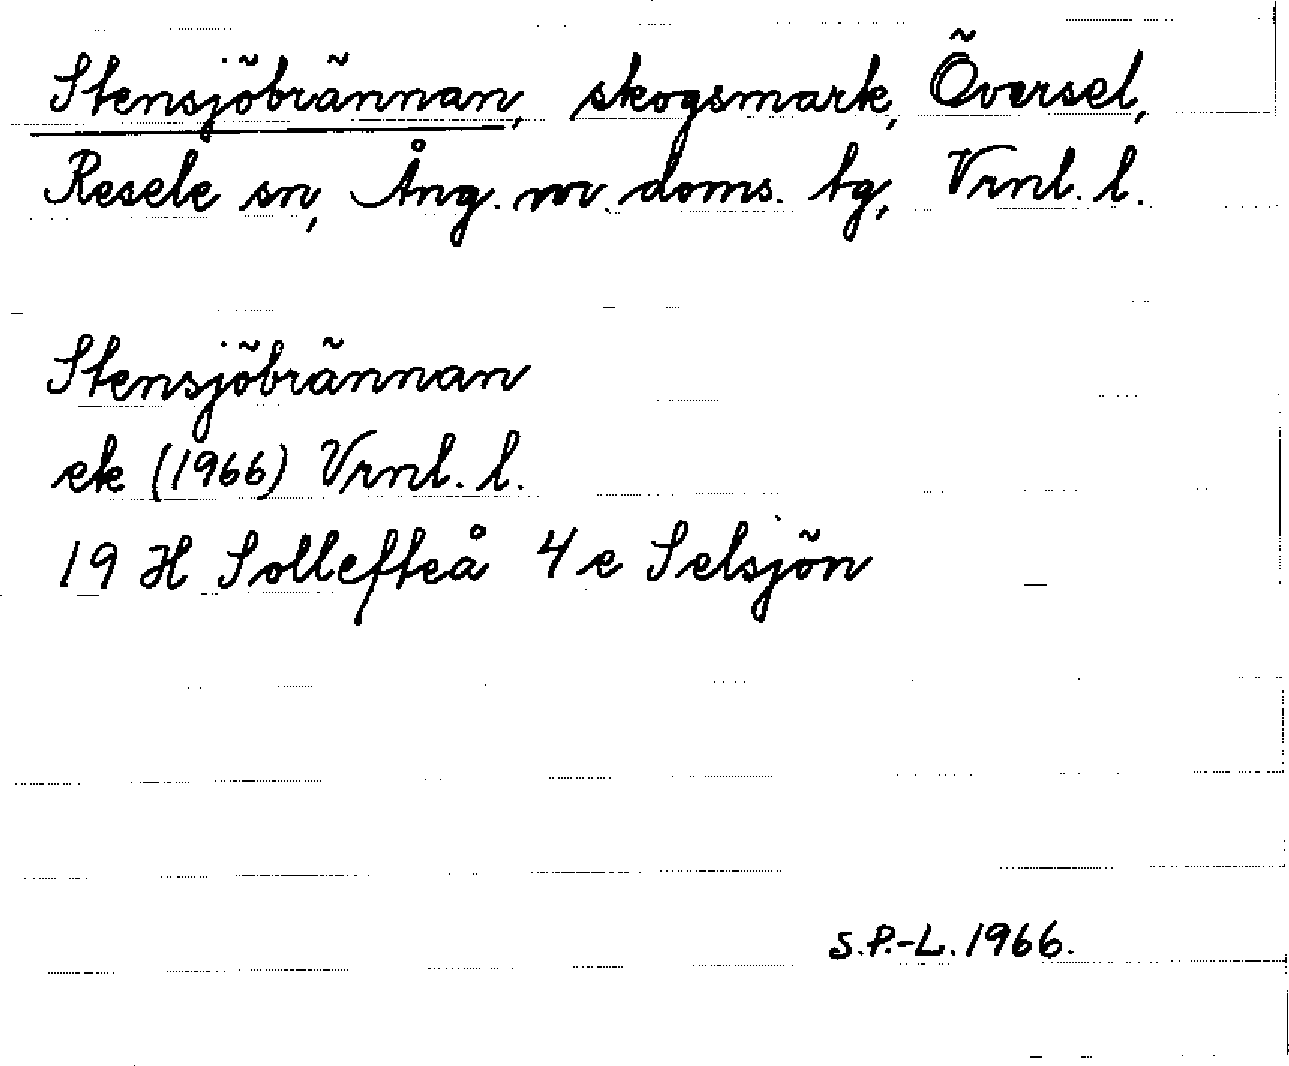 Stensjöbrännan, skogsmark, Översel,
Resele sn, Ång. nv. doms. tg, Vrnl. l.
Stensjöbrännan
ek (1966) Vrnl. l.
19 H Sollefteå 4e Selsjön
S.P.-L. 1966.